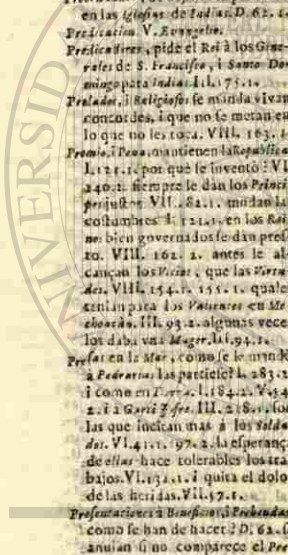 en las Iglesias de Indias. D. 62. 1.
Predicacion V. Evangelio.
Predicadores, pide el Rei à los Gene-
rales de S. Francisco, i Santo Do-
mingo para Indias. I. 175. 1.
Prelados, i Religiosos se manda vivan
concordes, i que no se metan en
lo que no les toca. VIII. 163. 1.
Premio, i Pena, mantienen la Republica
I. 121. 1. por que se inventò? VI.
240. 2. siempre le dan los Princi-
pes justos. VII. 82. 1. mudan las
costumbres I. 121. 1. en los Rei-
nos bien governados se dan pres-
to. VIII. 162. 2. antes le al-
cançan los Vicios, que las Virtu-
des. VIII. 154. 1. 155. 1. quales
tenian para los Valientes en Me-
choacàn. III. 93. 2. algunas veces
los daba una Muger. III. 94. 1.
Presas en la Mar, como se le mandò
à Pedrarias las partiese? I. 283. 2.
i como en Tierra. I. 284. 2. V. 54.
2. i à Garci Jofre. III. 218. 1. son
las que incitan mas à los Solda-
dos. VI. 41. 1. 97. 2. la esperança
de ellas hace tolerables los tra-
bajos. VI. 131. 1. i quita el dolor
de las heridas. VII. 57. 1.
Presentaciones à Beneficios, i Prebendas
como se han de hacer? D. 62. se
anulan si no comparece el Pre-